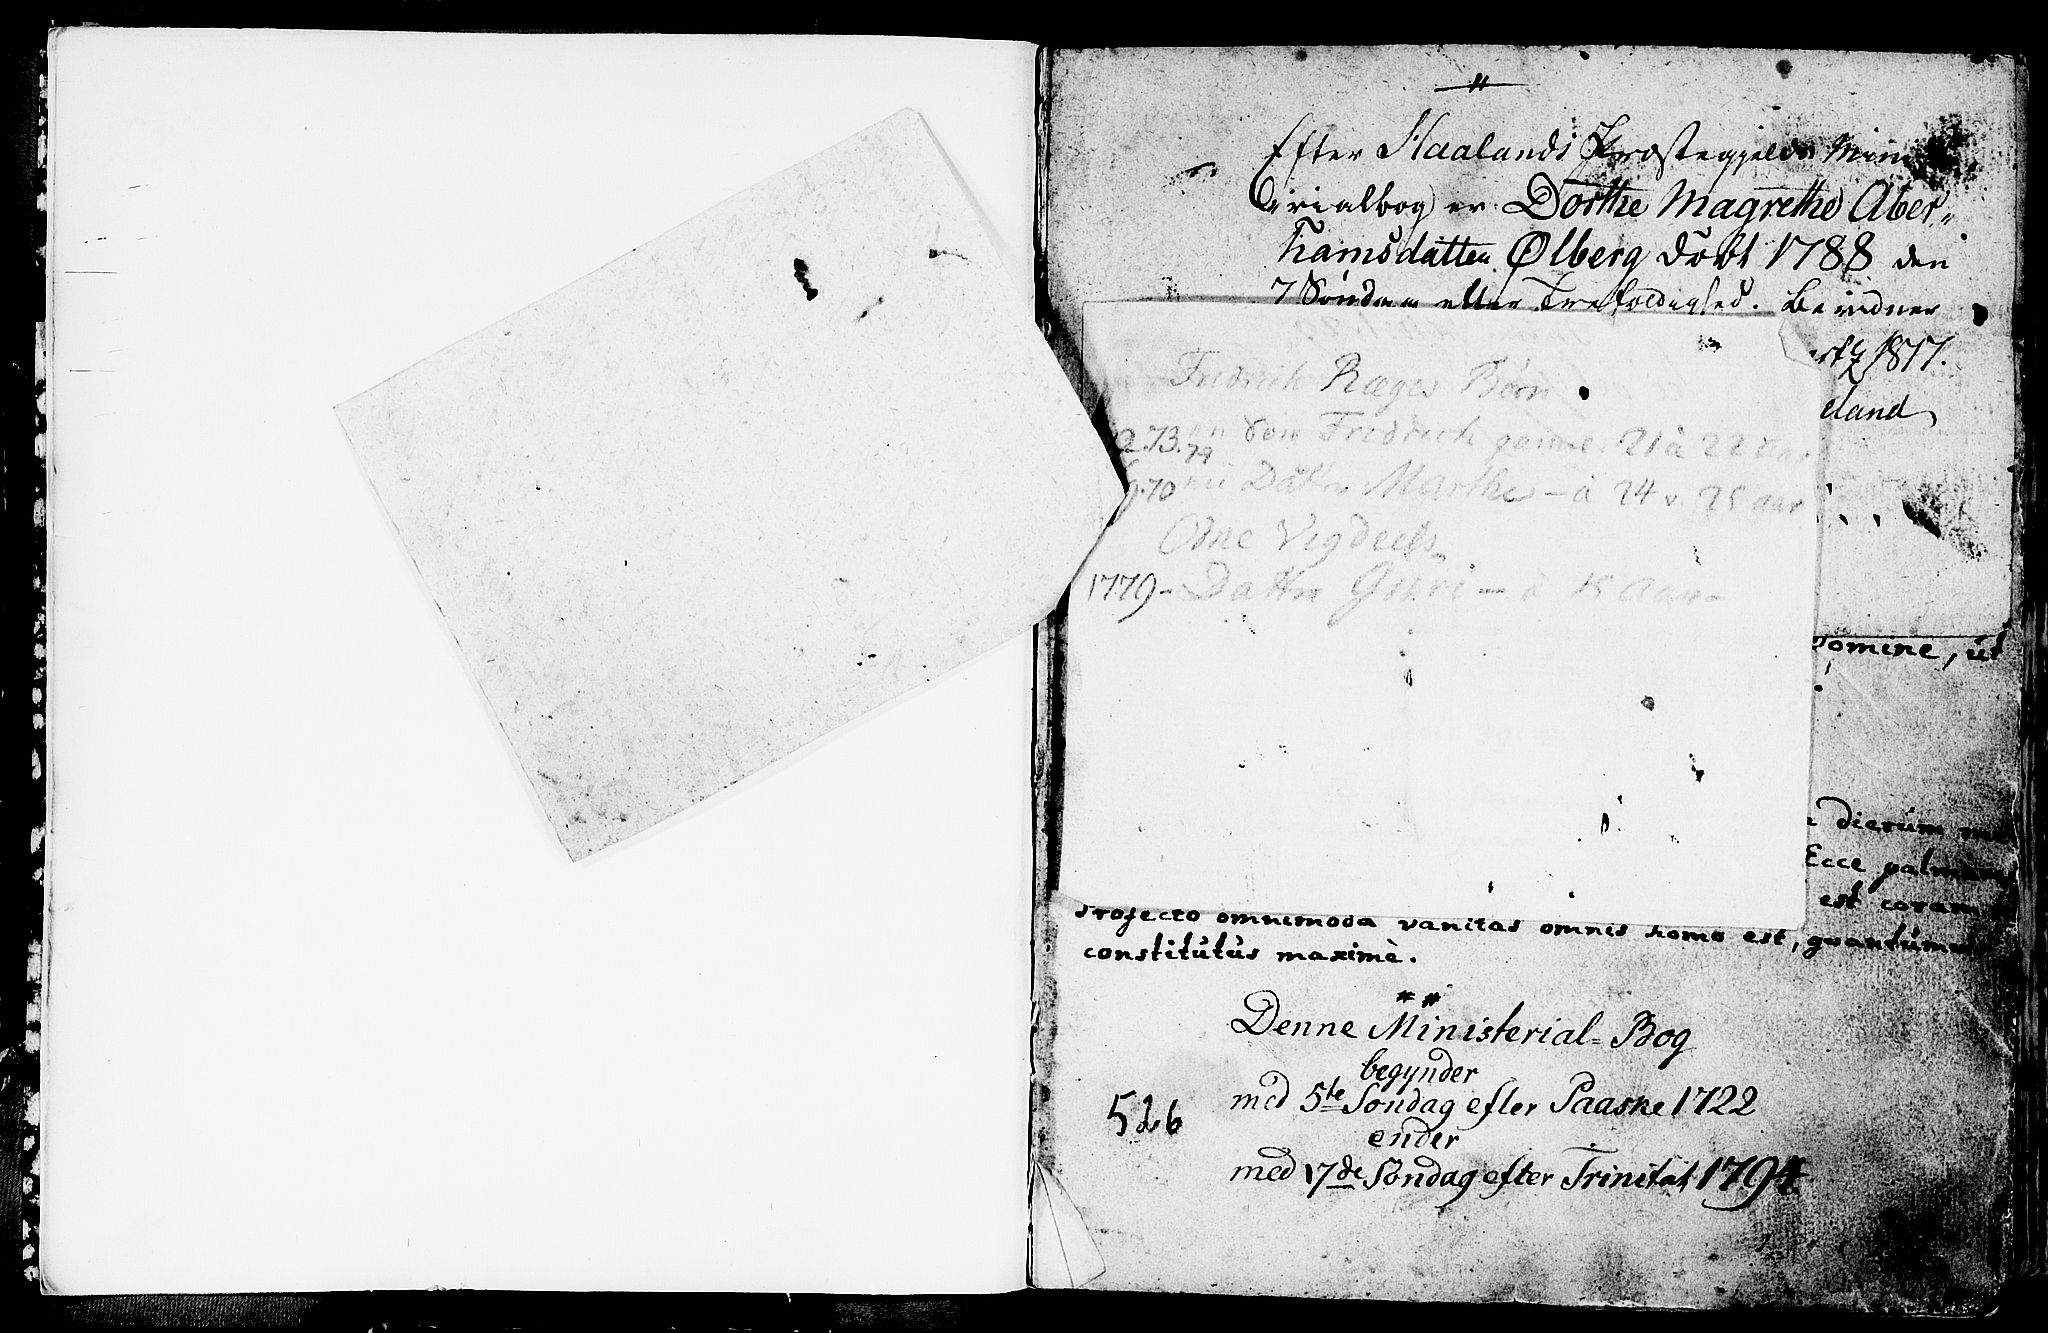 Efter Haalands Præstegjelds Mini
sterialbog er Dorthe Magrethe Aber-
hamsdatter Ølberg døbt 1788 den
7 Søndag efter Trefoldighed. Bevidner
1817.
eland
Fredrich Ræges Børn
273. Søn Fredrich 21 à 22 aar
74
70 Datter Marthe - à 24 v. 25 aar
Odne Vigdeels
1779 - Datter Guri - à 15 Aar -
Domine, ut
dierum
Ecce palmares
est coram
Profecto omnimoda vanitas omnis homo est, quantumvis
constitutus maximè.
Denne Ministerial-Bog
begynder
med 5te Søndag efter Paaske 1722
ender
med 17de Søndag efter Trinitat 1794
526